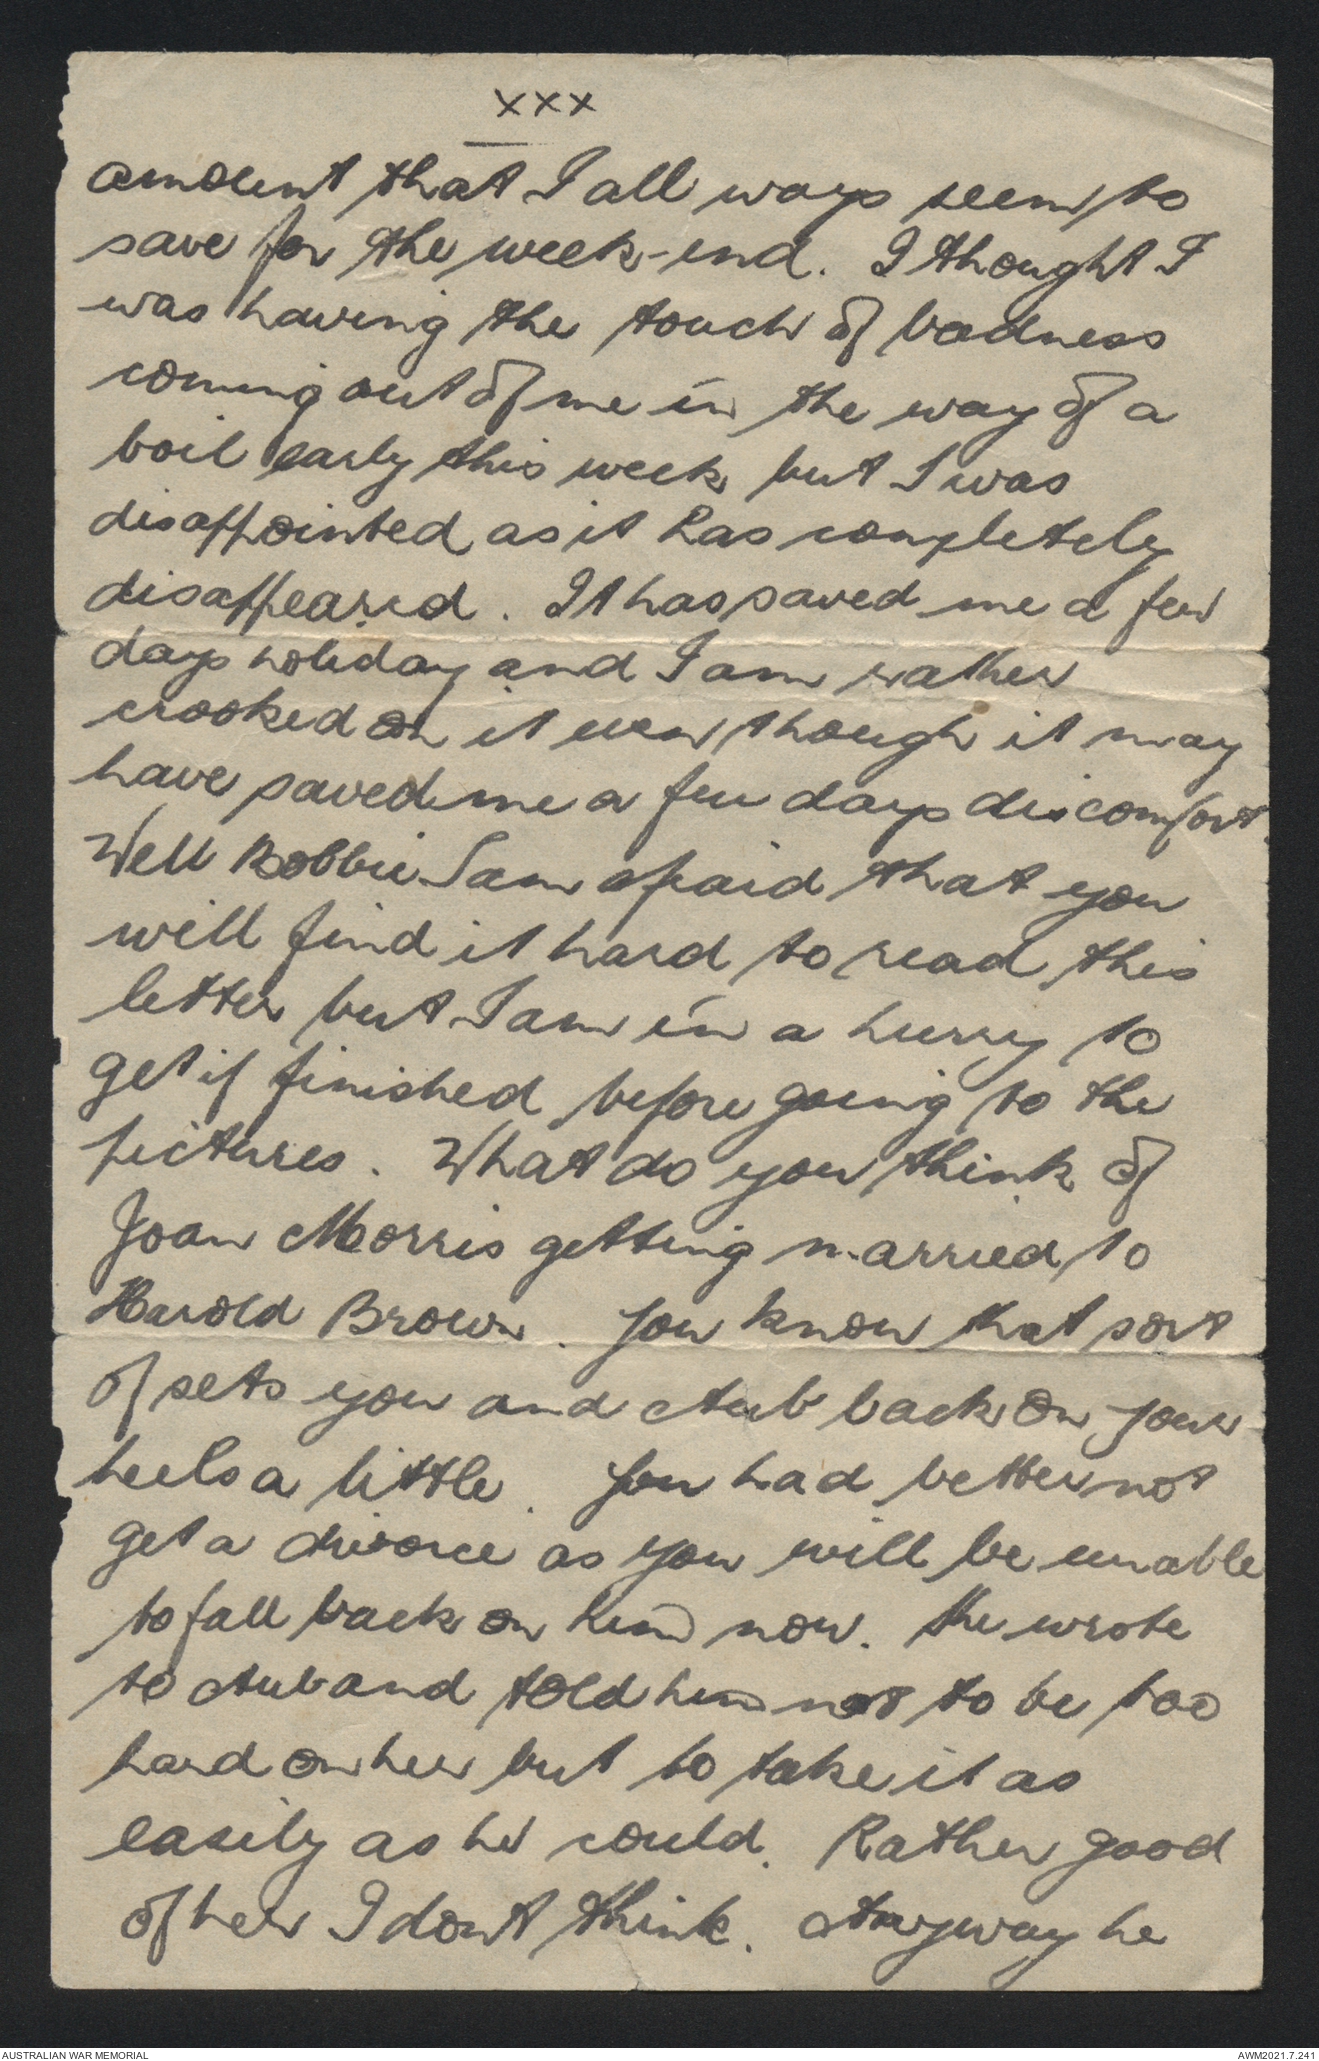 xxx
amount that I all ways seem to
save for the week-end. I thought I
was having the touch of badness
coming out of me in the way of a
boil early this week but I was
disappointed as it has completely
disappeared. It has saved me a few
days holiday and I am rather
crooked on it even though it may
have saved me a few days discomfort.
Well Bobbie I am afraid that you
will find it hard to read this
letter but I am in a hurry to
get if finished before going to the
pictures. What do you think of
Joan Morris getting married to
Harold Brown. You know that sort
of sets you and Aub back on your
heels a little. You had better not
get a divorce as you will be unable
to fall back on him now. She wrote
to Aub and told him not to be too
hard on her but to take it as
easily as he could. Rather good
of her I dont think. Anyway he
AUSTRALIAN WAR MEMORIAL
AWM2021.7.241